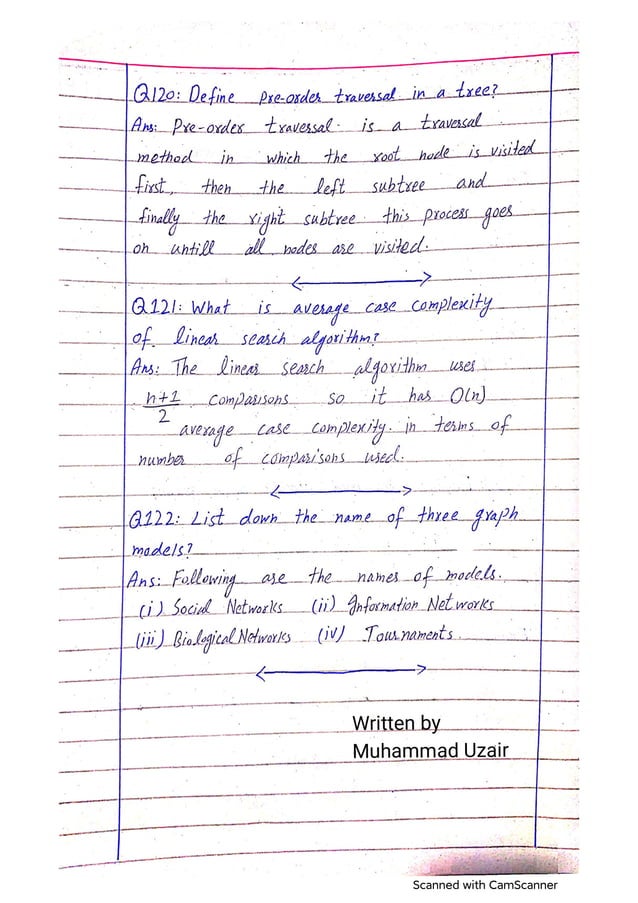 Q120: Define Pre-order traversal in a tree?
Ans: Pre-order traversal is a traversal
method in which the root node is visited
first, then the left subtree and
finally the right subtree this process goes
on untill all nodes are visited.
Q121: What is average case complexity
of linear search algorithm?
Ans: The linear search algorithm uses
n+1
2
comparisons so it has O(n)
average case complexity in terms of
number of comparisons used.
Q122: List down the name of three graph
models?
Ans: Following are the names of models.
(i) Social Networks (ii) Information Networks
(iii) Biological Networks (iv) Tournaments.
Written by
Muhammad Uzair
Scanned with CamScanner